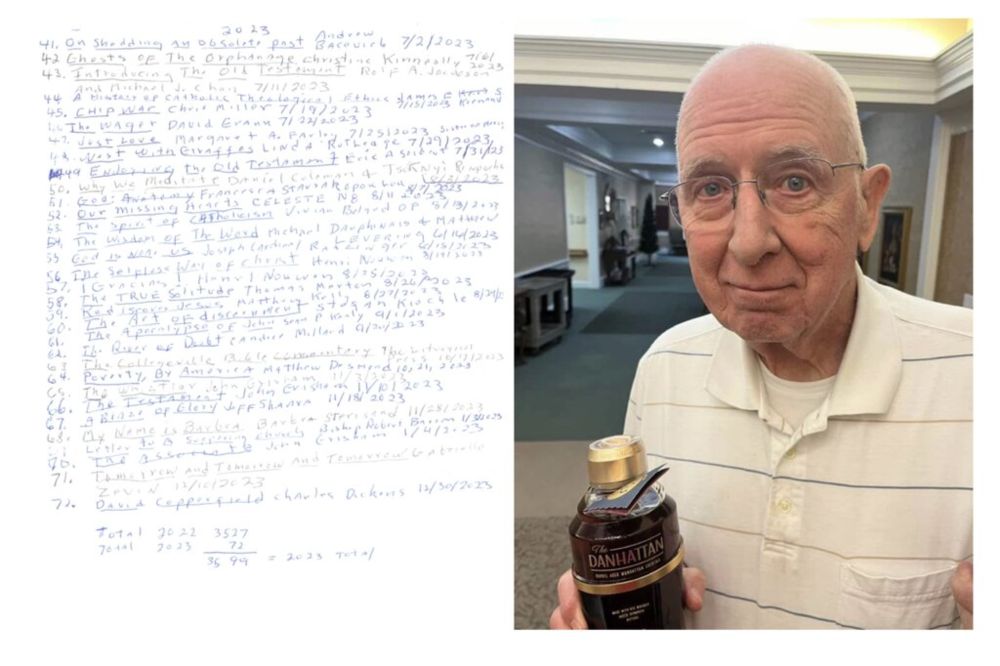 2023
41. On Shedding an Obsolete past Andrew
7/2/2023
42 Ghosts of The Orphanage christine Kenneally 7/6/
2023
43. Introducing The Old Testament Rolf A. Jacobson
And Michael J. Chan 7/11/2023
44 A History of Catholic Theological Ethics James F
45. CHIP WAR Chris Miller 7/19/2023
The Wager David Grann 7/22/2023
47. Just Love Margaret A. Farley 7/25/2023
West with Giraffes Linda Rutledge 7/29/2023
49 Enduring the Old Testament Eric A 7/31/23
50. Why We Meditate Daniel Goleman & Tsoknyi Rinpoche
51. God: Anatomy Francesca Stavrakopoulou 8/7/2023
52. Our missing Hearts CELESTE NG 8/11 2023
53. The Spirit of Catholicism Vivian Boland OP 8/13/2023
54. The Wisdom of The Word Michael Dauphinais & Matthew
LEVERING
55 God is Near us Joseph Cardinal Ratzinger
56. The Selfless Way of Christ Henri Nouwen
57. Gracias! Henri Nouwen 8/25/2023
58. The TRUE Solitude Thomas Merton 8/26/2023
59. Rediscover Jesus Matthew 8/27/2023
60. The Art of discernment Stefan
61. The Apocalypse of John Sean P Kealy 9/1/2023
The River of Doubt Candice Millard 9/20/2023
63 The Collegeville Bible Commentary
64. Poverty, By America Matthew Desmond 10, 21, 2023
65. The
66. The Testament John Grisham 11/10/2023
67. A Blaze of Glory Jeff Shaara 11/18/2023
68. My Name is Barbra Barbra Streisand 11/28/2023
Letter to A Suffering Church Bishop Robert Barron
70. The Associate John Grisham
71. Tomorrow and Tomorrow and Tomorrow Gabrielle
Zevin 12/10/2023
72. David Copperfield Charles Dickens 12/30/2023
Total 2022 3527
Total 2023 72
3599 = 2023 Total
The
DANHATTAN
BARREL AGED MANHATTAN COCKTAIL
MADE WITH RYE WHISKEY
BITTERS